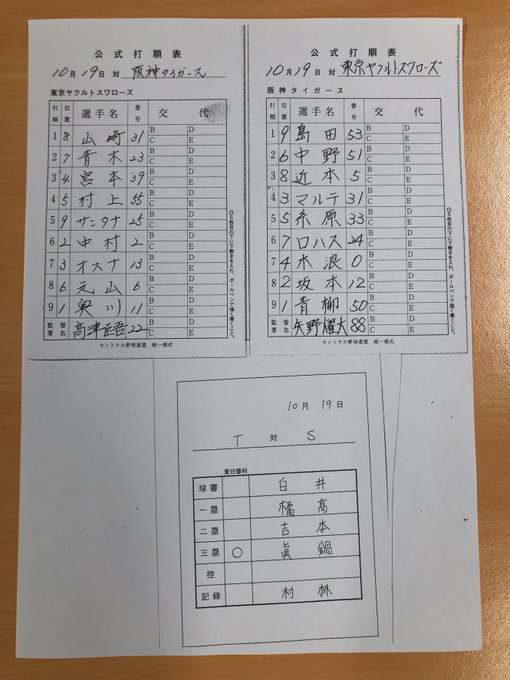 公式打順表
10月19日 対 阪神タイガース
東京ヤクルトスワローズ
打順 位置 選手名 番号 交代
1 8 山崎 31 B D C E
2 7 青木 23 B D C E
3 4 宮本 39 B D C E
4 5 村上 55 B D C E
5 9 サンタナ 25 B D C E
6 2 中村 2 B D C E
7 3 オスナ 13 B D C E
8 6 元山 6 B D C E
9 1 奥川 11 B D C E
監督署名 高津臣吾 22 B D C E
セントラル野球連盟 統一様式
◎5枚目の下に下敷きを入れ、ボールペンで強く書くこと。
公式打順表
10月19日 対 東京ヤクルトスワローズ
阪神タイガース
打順 位置 選手名 番号 交代
1 9 島田 53 B D C E
2 6 中野 51 B D C E
3 8 近本 5 B D C E
4 3 マルテ 31 B D C E
5 5 糸原 33 B D C E
6 7 ロハス 24 B D C E
7 4 木浪 0 B D C E
8 2 坂本 12 B D C E
9 1 青柳 50 B D C E
監督署名 矢野燿大 88 B D C E
セントラル野球連盟 統一様式
◎5枚目の下に下敷きを入れ、ボールペンで強く書くこと。
10月19日
T 対 S
責任審判
球審 白井
一塁 橘高
二塁 吉本
三塁 ○ 眞鍋
控
記録 村林